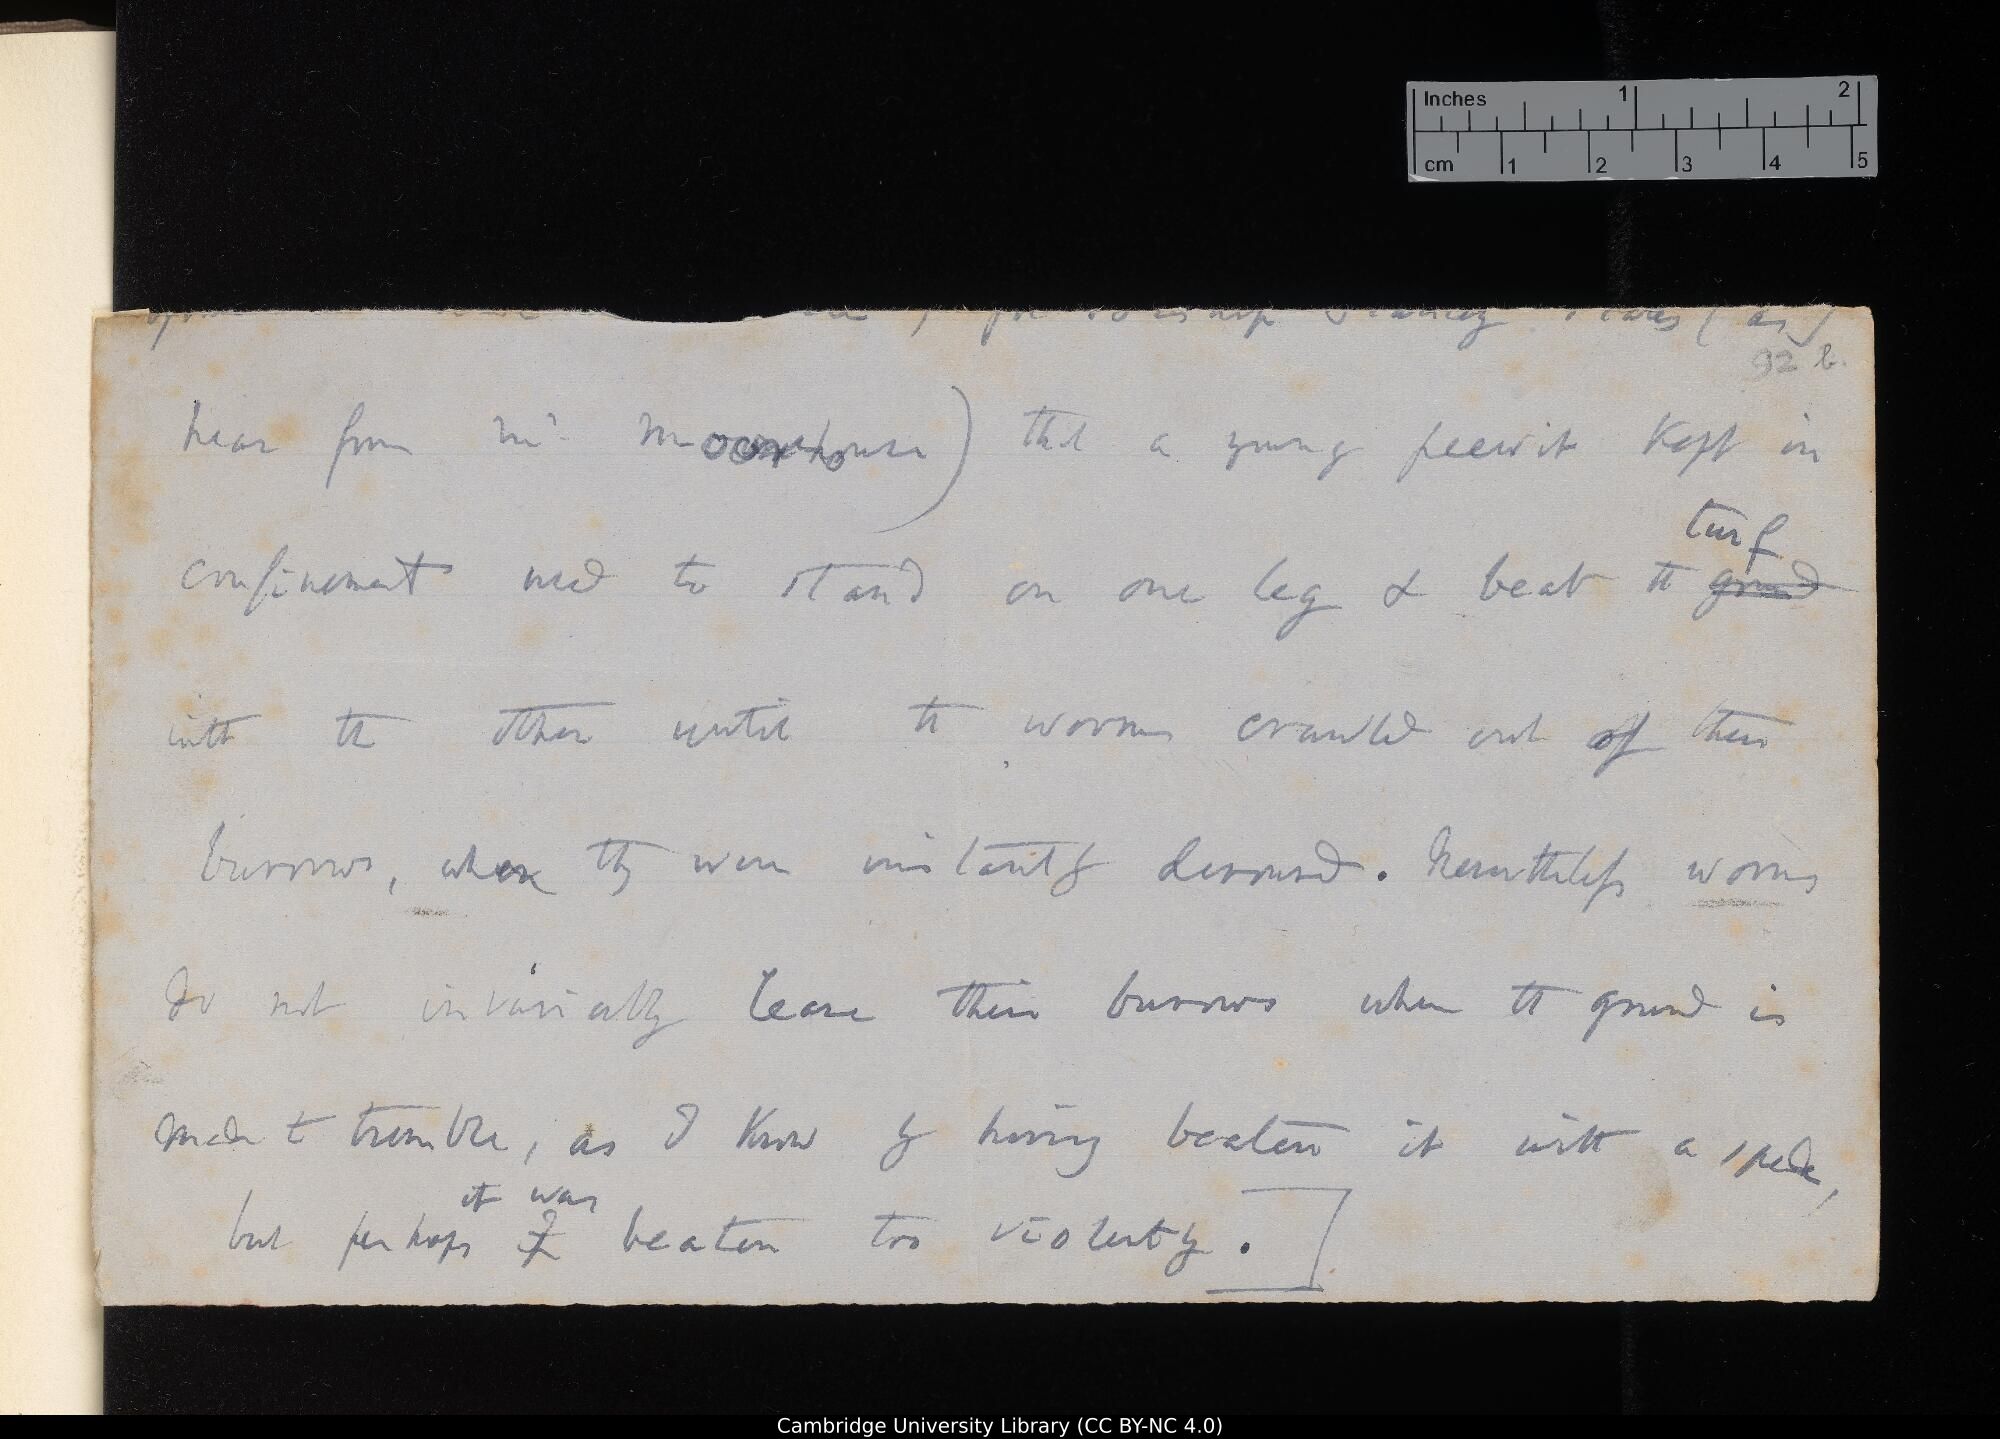 Inches 1 2
cm 1 2 3 4 5
for Bishop Stanley states (as I
92 b.
hear from Mr Moorhouse) that a young peewit kept in
turf
confinement used to stand on one leg & beat the ground
with the other until the worms crawled out of their
burrows, when they were instantly devoured. Nevertheless worms
do not invariably leave their burrows when the ground is
made to tremble, as I know by having beaten it with a spade,
it was
but perhaps I beaten too violently.
Cambridge University Library (CC BY-NC 4.0)